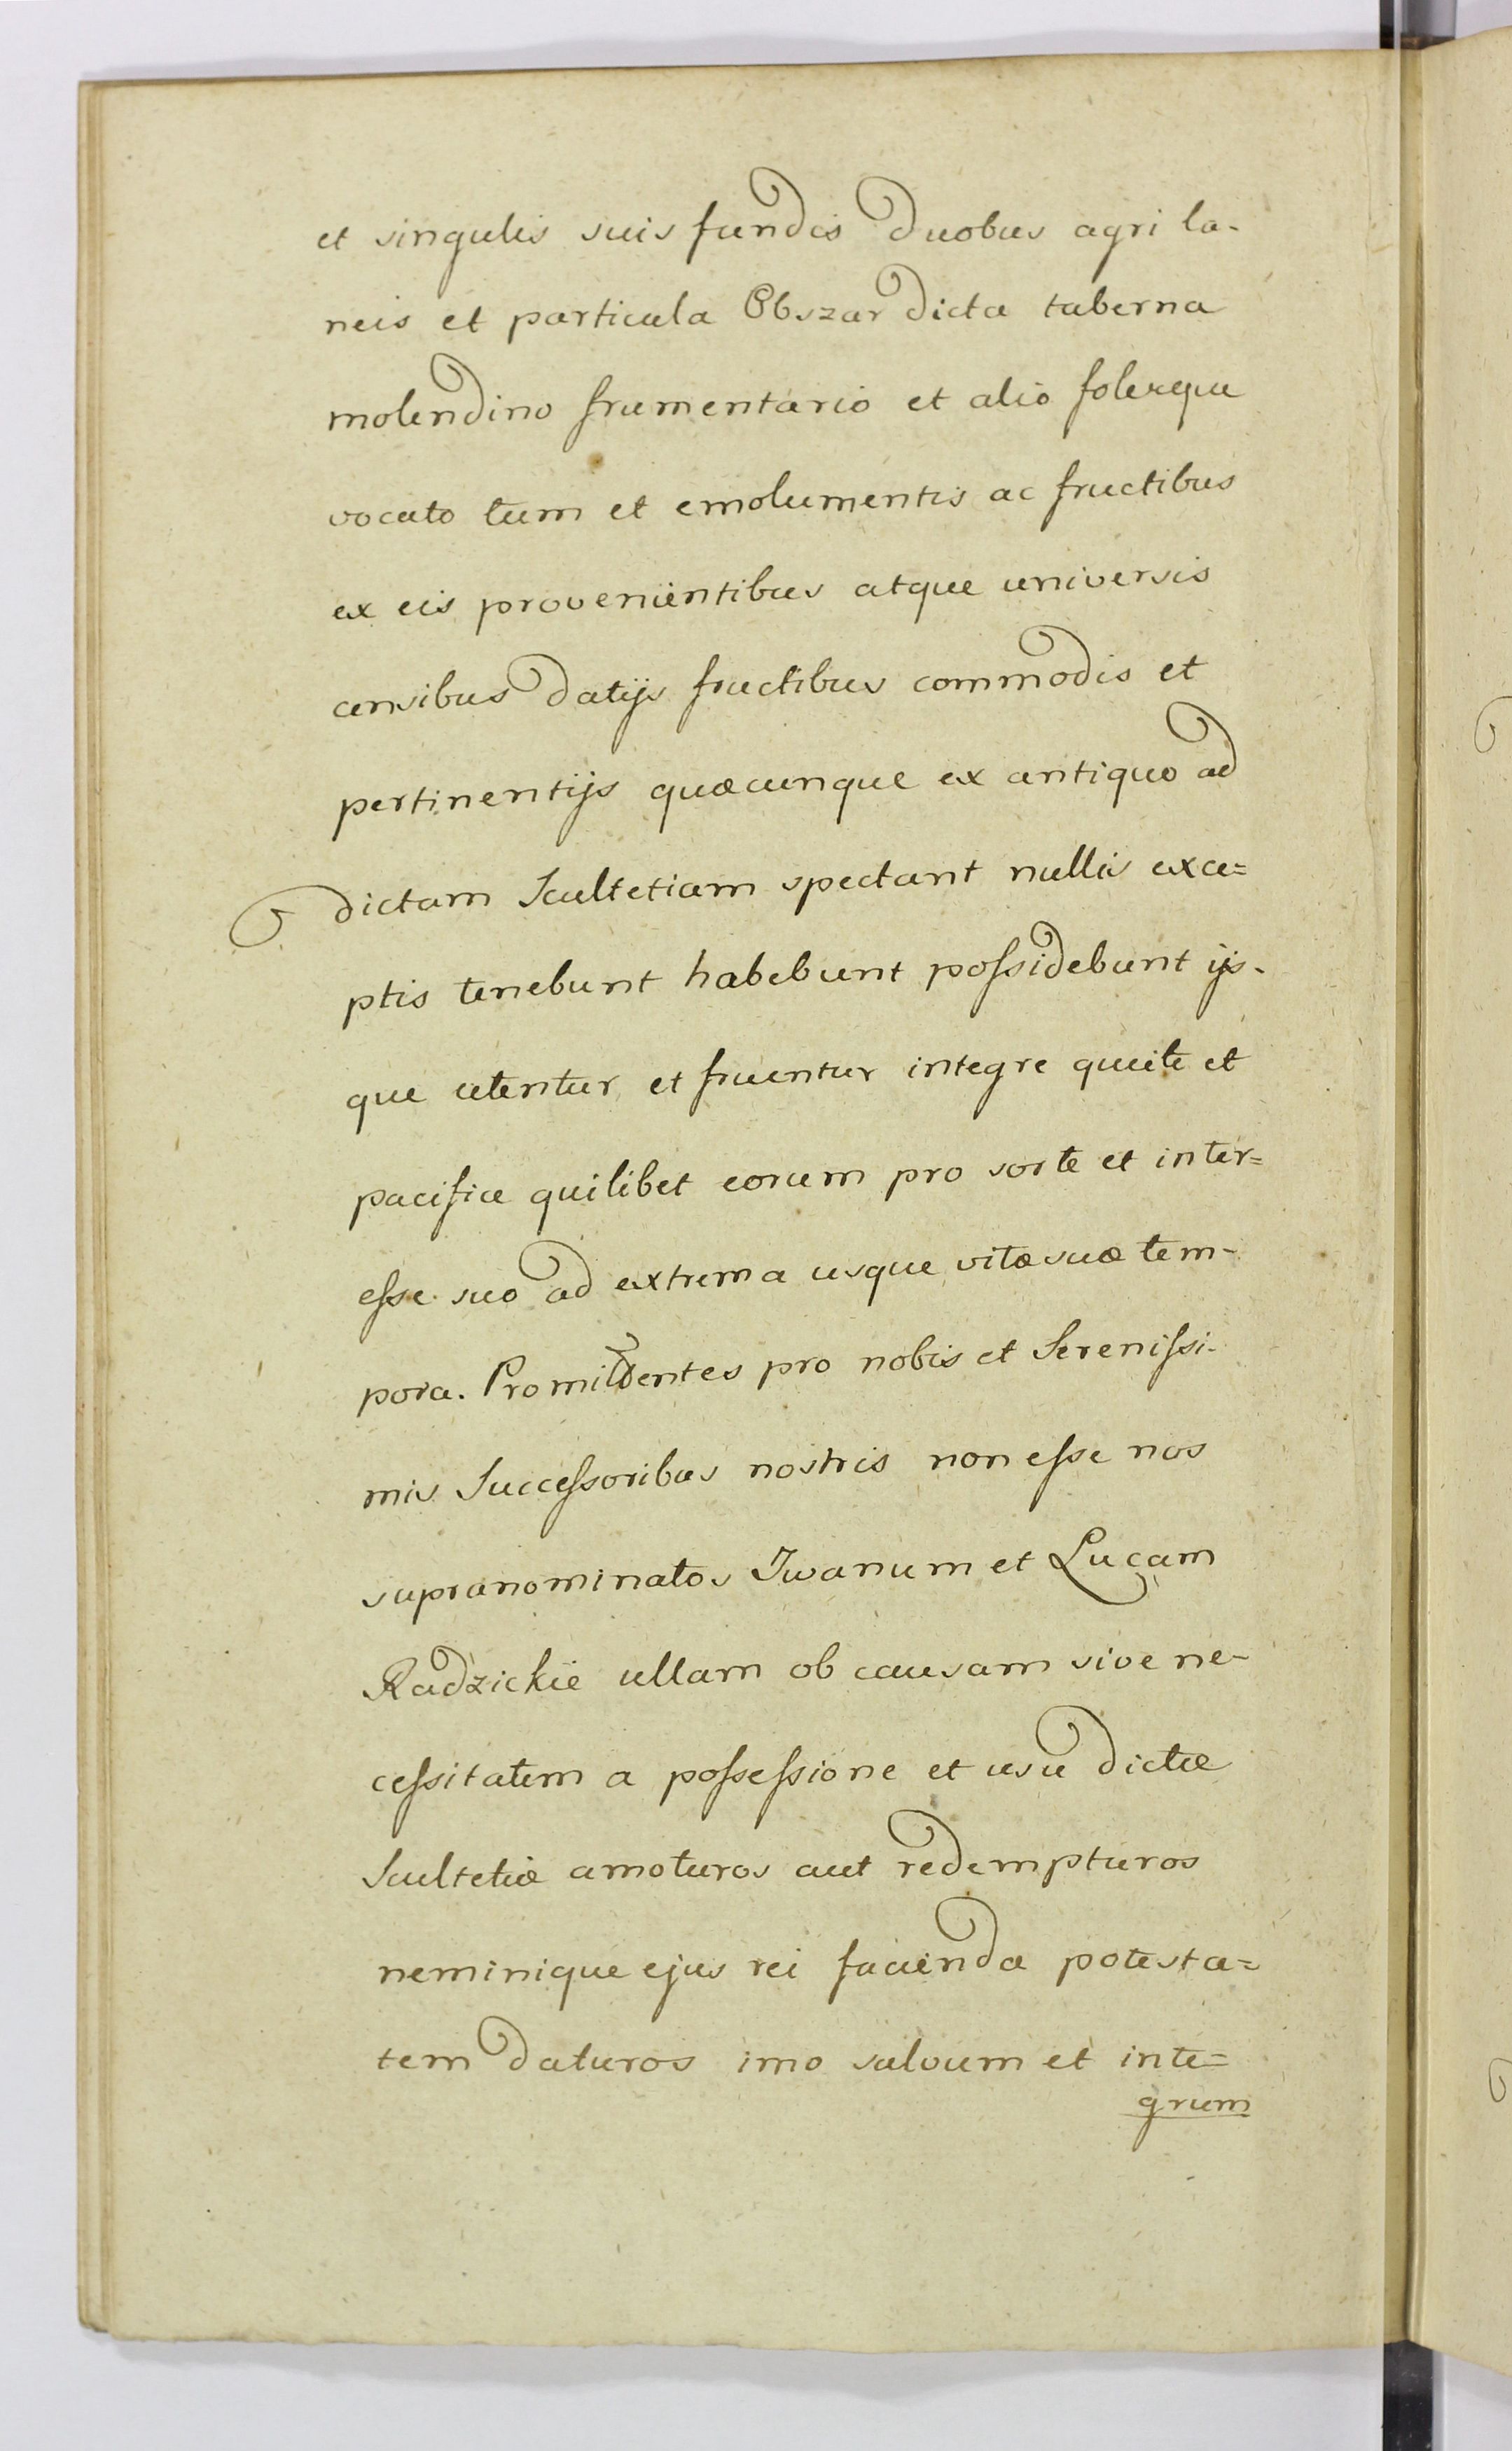 et singulis suis fundis duobus agri la-
neis et particula Obszar dicta taberna
molendino frumentario et alio foleręque
vocato tum et emolumentis ac fructibus
ex eis provenientibus atque universis
censibus datijs fructibus commodis et
pertinentijs quæcunque ex antiquo ad
dictam Scultetiam spectant nullis exce=
ptis tenebunt habebunt possidebunt ijs-
que utentur et fruentur integre quiete et
pacifice quilibet eorum pro sorte et inter=
esse suo ad extrema usque vitæ suæ tem-
pora. Promittentes pro nobis et Serenissi-
mis Successoribus nostris non esse nos
supranominatos Iwanum et Lucam
Radzickie ullam ob causam sive ne-
cessitatem a possessione et usu dictæ
Scultetiæ amoturos aut redempturos
neminique ejus rei facienda potesta=
tem daturos imo salvum et inte=
grum